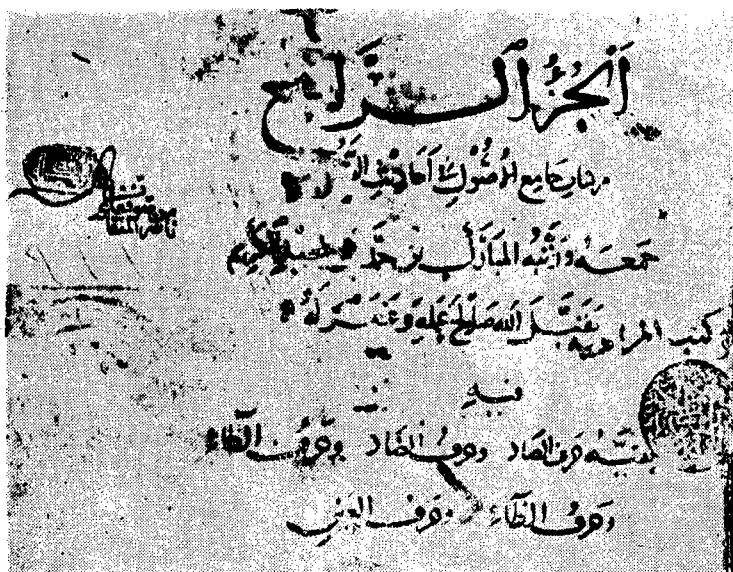 الجزء الرابع
من كتاب جامع الأصول في أحاديث الرسول
جمعه وألفه المبارك بن محمد بن عبد الكريم
تقبل الله صالح عمله وغفر زلله
فيه
بقية حرف الصاد وحرف الضاد وحرف الطاء
وحرف الظاء وحرف العين